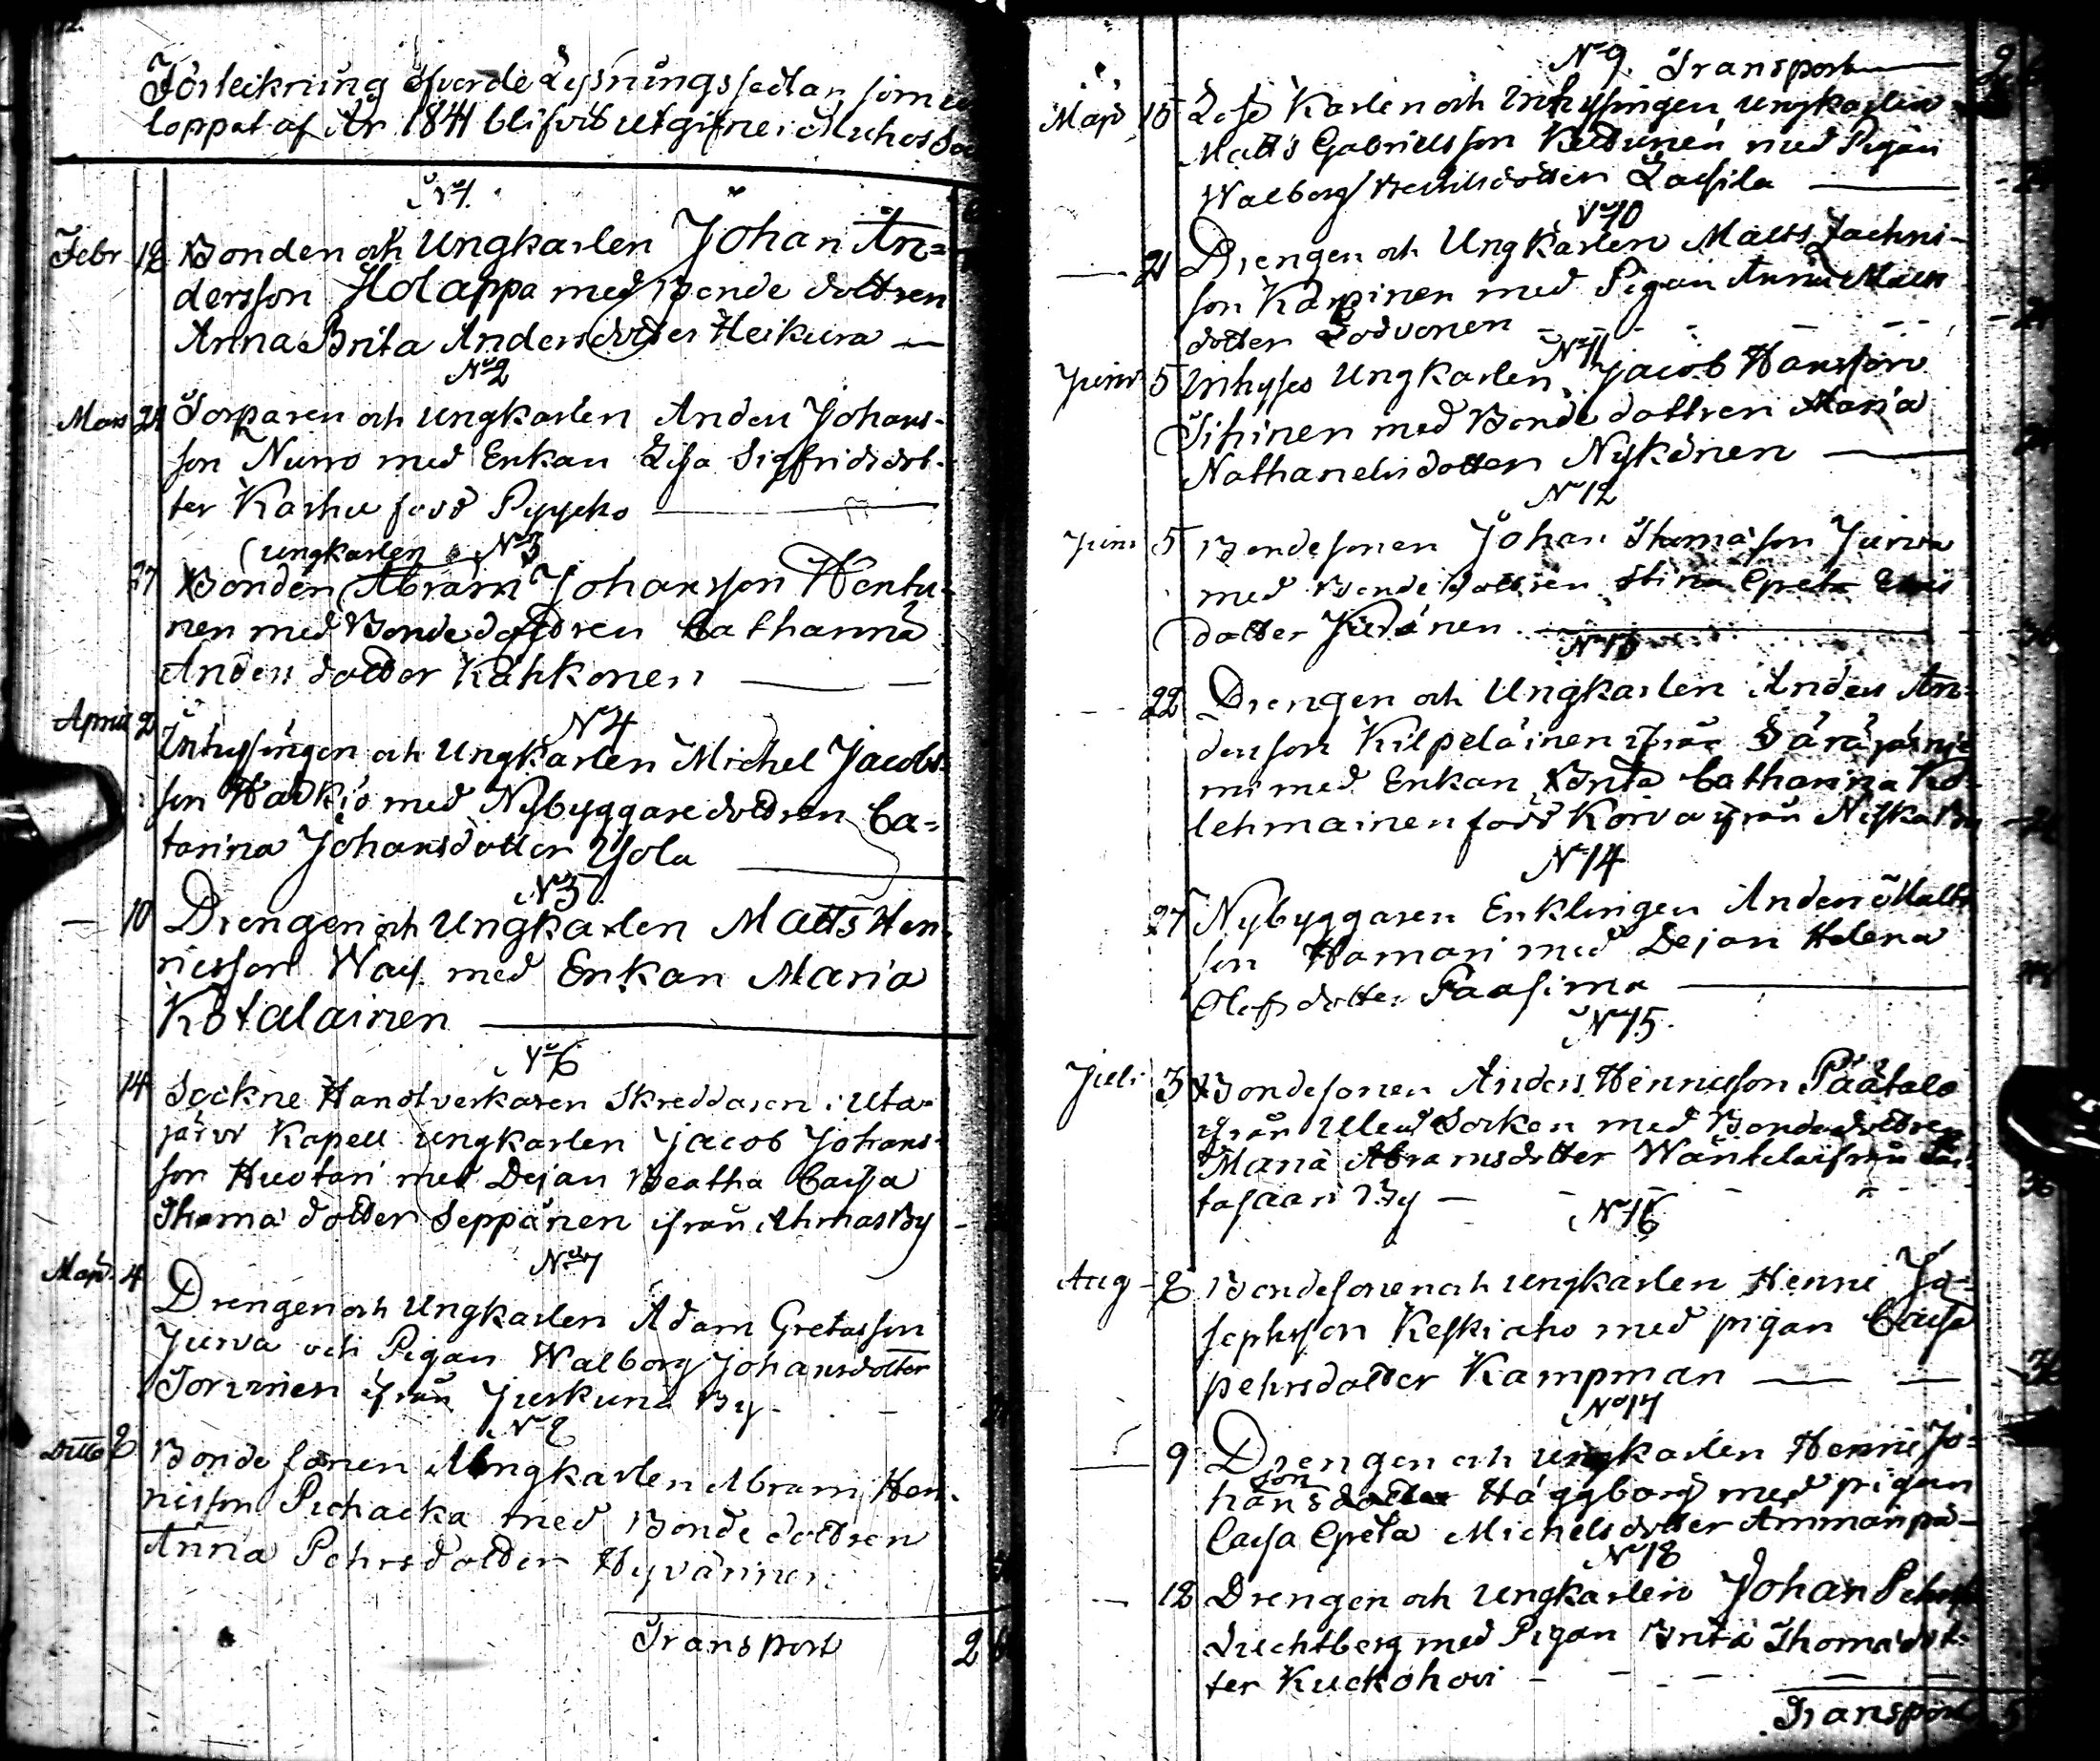 Förteckning öfver de Lysningssedlar som
loppet af År 1841 blifvit utgifne i Muhos
No 1.
Febr 12 Bonden och Ungkarlen Johan An-
dersson Holappa med Bonde dottren
Anna Brita Andersdotter Heikura —
No 2
Mars 21 Torparen och ungkarlen Anders Johans-
son Nurro med Enkan Lisa Sigfridsdot-
ter Karhu född Pyycko —
(ungkarlen No 3
27 Bonden Abram Johansson Hentu-
nen med Bondedottren Catharina
Anders dotter Kähkönen —
April 2 No 4
Inhysingen och Ungkarlen Michel Jacobs-
son Harkiö med Nybyggaredottren Ca-
tarina Johansdotter Ysola
No 5
— 10 Drengen och Ungkarlen Matts Hen-
ricsson med Enkan Maria
Kotalainen —
No 6
14 Sockne Handtverkaren Skreddaren i Uta-
järvi Kapell ungkarlen Jacob Johans-
son Huotari med Dejan Beatha Caisa
Thoma dotter Seppänen ifrån Ahmas By
No 7
Maji 4 Drengen och Ungkarlen Adam Gretasson
Jurva och Pigan Walborg Johansdotter
Torvinen ifrån Juskuna By
No 8
Ditto 8 Bonde sonen Ungkarlen Abram Hen-
ricsson Pichacka med Bonde dottren
Anna Pehrsdotter Hyvärinen
Transport 2
No 9 Transport — 2
Maji 15 Lose Karlen och Inhysingen ungkarlen
Matts Gabrielsson Keltunen med Pigan
Walborg Bertilsdotter Laesila —
No 10
— 21 Drengen och Ungkarlen Matts Zachris-
son Karpinen med Pigan Anna Matts
dotter Lodvonen
No 11
Junii 5 Inhyses Ungkarlen Jacob Hansson
Tihinen med Bonde dottren Maria
Nathanelsdotter Nykänen —
No 12
Juni 5 Bondesonen Johan Thomasson Jurva
med Bonde dottren Stina Greta
dotter Kuränen —
No 13
22 Drengen och Ungkarlen Anders An-
dersson Kilpeläinen ifrån Säräjärnie-
mi med Enkan Brita Catharina Ko-
lehmainen född Korva ifrån Niska By
No 14
27 Nybyggaren Enklingen Anders Matts
son Hamari med Dejan Helena
Olofsdotter Paasima —
No 15.
Juli 3 Bondesonen Anders Henricsson Päätalo
ifrån Uleå Socken med Bondedottren
Maria Abramsdotter Wäntela ifrån
tasaari By —
No 16
Aug 8 Bondesonen och ungkarlen Henric Jo-
sephsson Keskiaho med pigan Caisa
pehrsdotter Kampman —
No 17
— 9 Drengen och ungkarlen Henric Jo-
son
hansdotter Häggborg med pigan
Caisa Greta Michelsdotter Ammänpä-
No 18
— 12 Drengen och Ungkarlen Johan Pehrs
Luchtberg med Pigan Brita Thomädot-
ter Kuckohovi
Transport 5